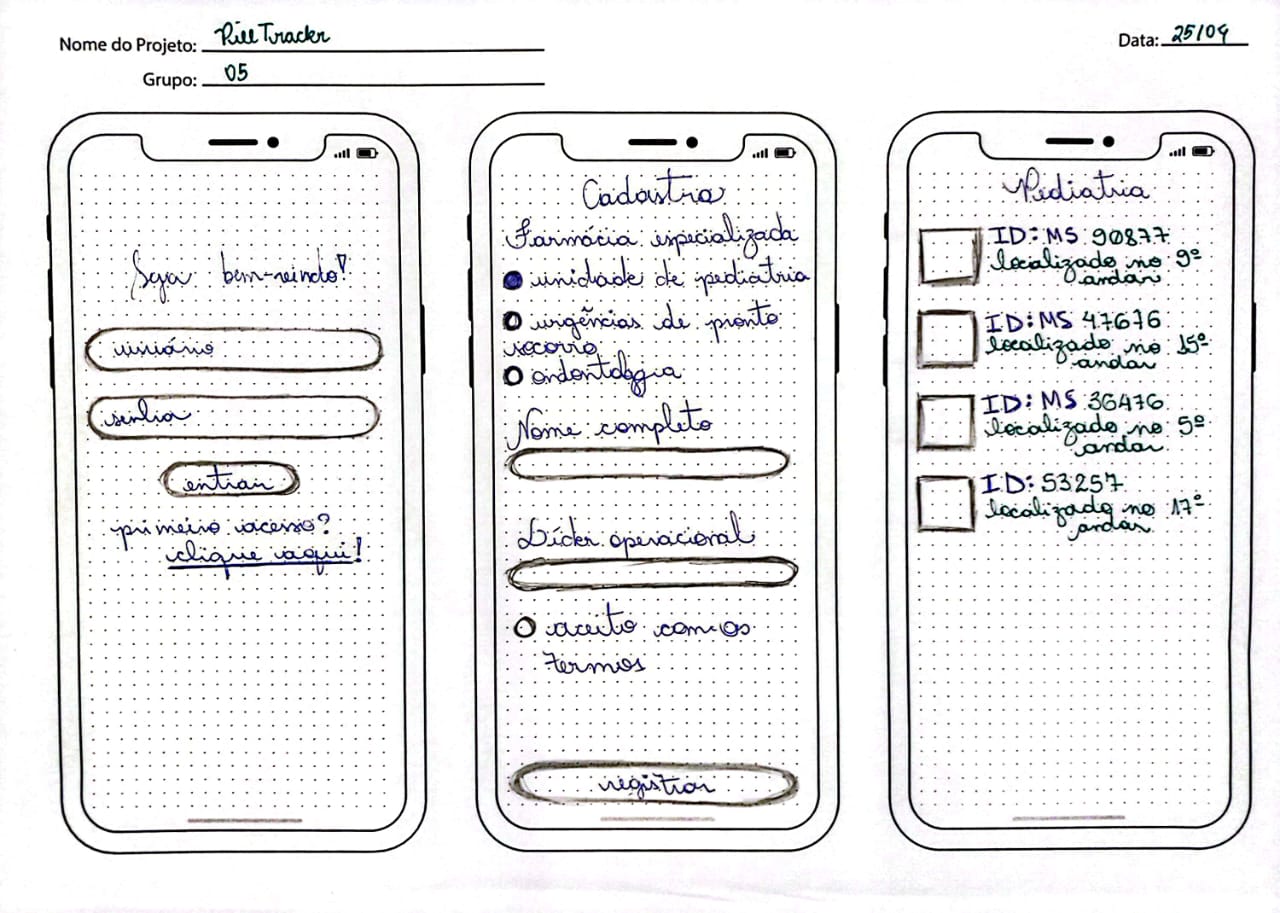 Nome do Projeto: Pill Tracker
Data: 25/09
Grupo: 05
Seja bem-vindo!
usuário
senha
entrar
primeiro acesso?
clique aqui!
Cadastro
Farmácia especializada
unidade de pediatria
urgências de pronto
socorro
odontologia
Nome completo
Líder operacional
aceito com os
termos
registrar
Pediatria
ID: MS 90877
localizado no 9º
andar
ID: MS 47676
localizado no 15º
andar
ID: MS 36476
localizado no 5º
andar
ID: 53257
localizado no 17º
andar